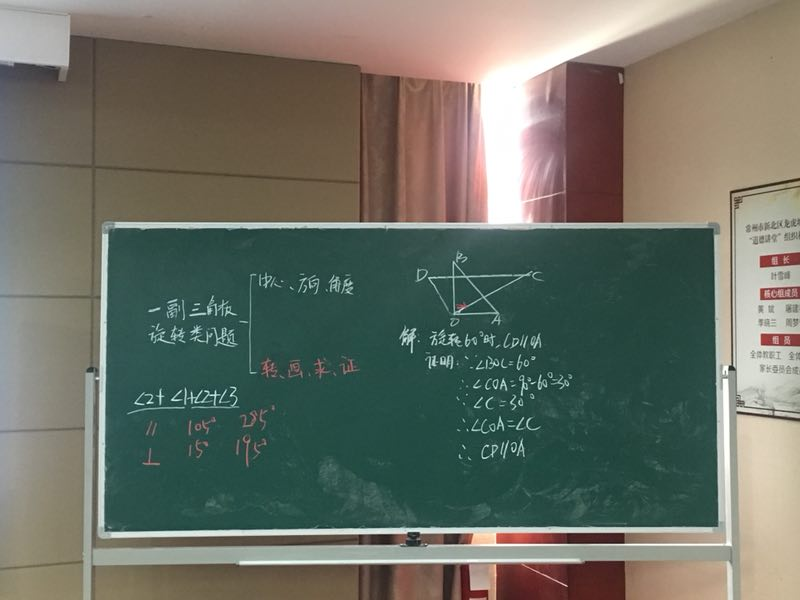 一副三角板
旋转类问题
中心、方向、角度
转、画、求、证
∠2+∠1+∠2+∠3
// 105° 285°
⊥ 15° 195°
B
D
C
O
A
解: 旋转60°时, CD//OA
证明: ∵∠BOC=60°
∴∠COA=90°-60°=30°
∵∠C=30°
∴∠COA=∠C
∴CD//OA
常州市新北区龙虎
“道德讲堂”组织
组 长
叶雪峰
核心组成员
黄斌
季晓三 周梦
组 员
全体教职工 全体
家长委员会成